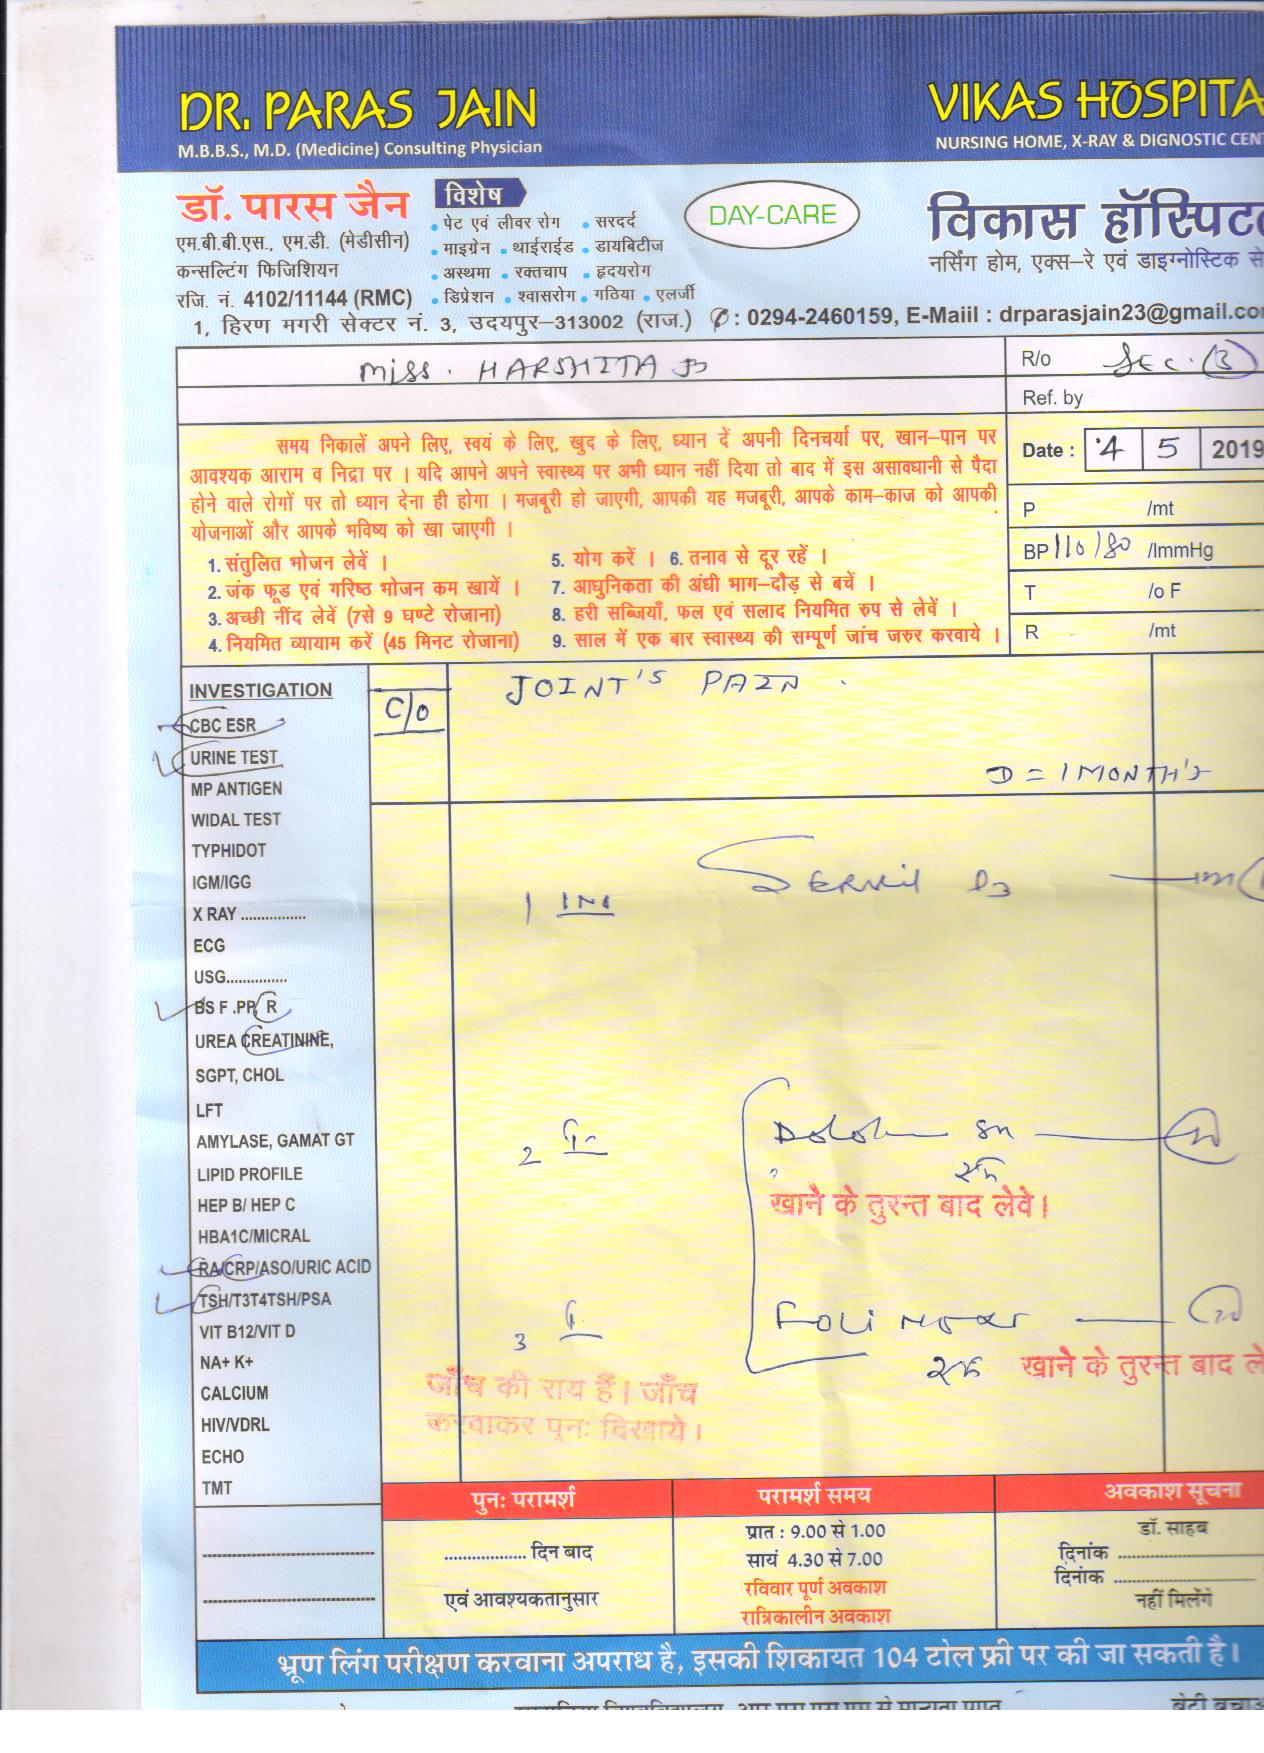 DR. PARAS JAIN
M.B.B.S., M.D. (Medicine) Consulting Physician
VIKAS HOSPITA
NURSING HOME, X-RAY & DIGNOSTIC CEN
डॉ. पारस जैन
एम.बी.बी.एस., एम.डी. (मेडीसीन)
कन्सल्टिंग फिजिशियन
रजि. नं. 4102/11144 (RMC)
विशेष
• पेट एवं लीवर रोग • सरदर्द
• माइग्रेन • थाईराईड • डायबिटीज
• अस्थमा • रक्तचाप • हृदयरोग
• डिप्रेशन • श्वासरोग • गठिया • एलर्जी
DAY-CARE
विकास हॉस्पिटल
नर्सिंग होम, एक्स–रे एवं डाइग्नोस्टिक से
1, हिरण मगरी सेक्टर नं. 3, उदयपुर–313002 (राज.) : 0294-2460159, E-Maiil : drparasjain23@gmail.co
Miss. HARSHITA
R/o Sec. (3)
Ref. by
समय निकालें अपने लिए, स्वयं के लिए, खुद के लिए, ध्यान दें अपनी दिनचर्या पर, खान–पान पर
आवश्यक आराम व निद्रा पर । यदि आपने अपने स्वास्थ्य पर अभी ध्यान नहीं दिया तो बाद में इस असावधानी से पैदा
होने वाले रोगों पर तो ध्यान देना ही होगा । मजबूरी हो जाएगी, आपकी यह मजबूरी, आपके काम–काज को आपकी
योजनाओं और आपके भविष्य को खा जाएगी ।
1. संतुलित भोजन लेवें ।
2. जंक फूड एवं गरिष्ठ भोजन कम खायें ।
3. अच्छी नींद लेवें (7से 9 घण्टे रोजाना)
4. नियमित व्यायाम करें (45 मिनट रोजाना)
5. योग करें । 6. तनाव से दूर रहें ।
7. आधुनिकता की अंधी भाग–दौड़ से बचें ।
8. हरी सब्जियाँ, फल एवं सलाद नियमित रुप से लेवें ।
9. साल में एक बार स्वास्थ्य की सम्पूर्ण जांच जरुर करवाये ।
Date : 4 5 2019
P /mt
BP 110/80 /ImmHg
T /o F
R /mt
INVESTIGATION
CBC ESR
URINE TEST
MP ANTIGEN
WIDAL TEST
TYPHIDOT
IGM/IGG
X RAY ................
ECG
USG...............
BS F .PP, R
UREA CREATININE,
SGPT, CHOL
LFT
AMYLASE, GAMAT GT
LIPID PROFILE
HEP B/ HEP C
HBA1C/MICRAL
RA/CRP/ASO/URIC ACID
TSH/T3T4TSH/PSA
VIT B12/VIT D
NA+ K+
CALCIUM
HIV/VDRL
ECHO
TMT
C/O
JOINT'S PAIN
D = 1 MONTH'S
1 INJ D3
2
खाने के तुरन्त बाद लेवे।
3
खाने के तुरन्त बाद ले
जाँच की राय हैं। जाँच
करवाकर पुनः दिखाये।
पुनः परामर्श
.................. दिन बाद
एवं आवश्यकतानुसार
परामर्श समय
प्रात : 9.00 से 1.00
सायं 4.30 से 7.00
रविवार पूर्ण अवकाश
रात्रिकालीन अवकाश
अवकाश सूचना
डॉ. साहब
दिनांक
दिनांक
नहीं मिलेंगे
भ्रूण लिंग परीक्षण करवाना अपराध है, इसकी शिकायत 104 टोल फ्री पर की जा सकती है।